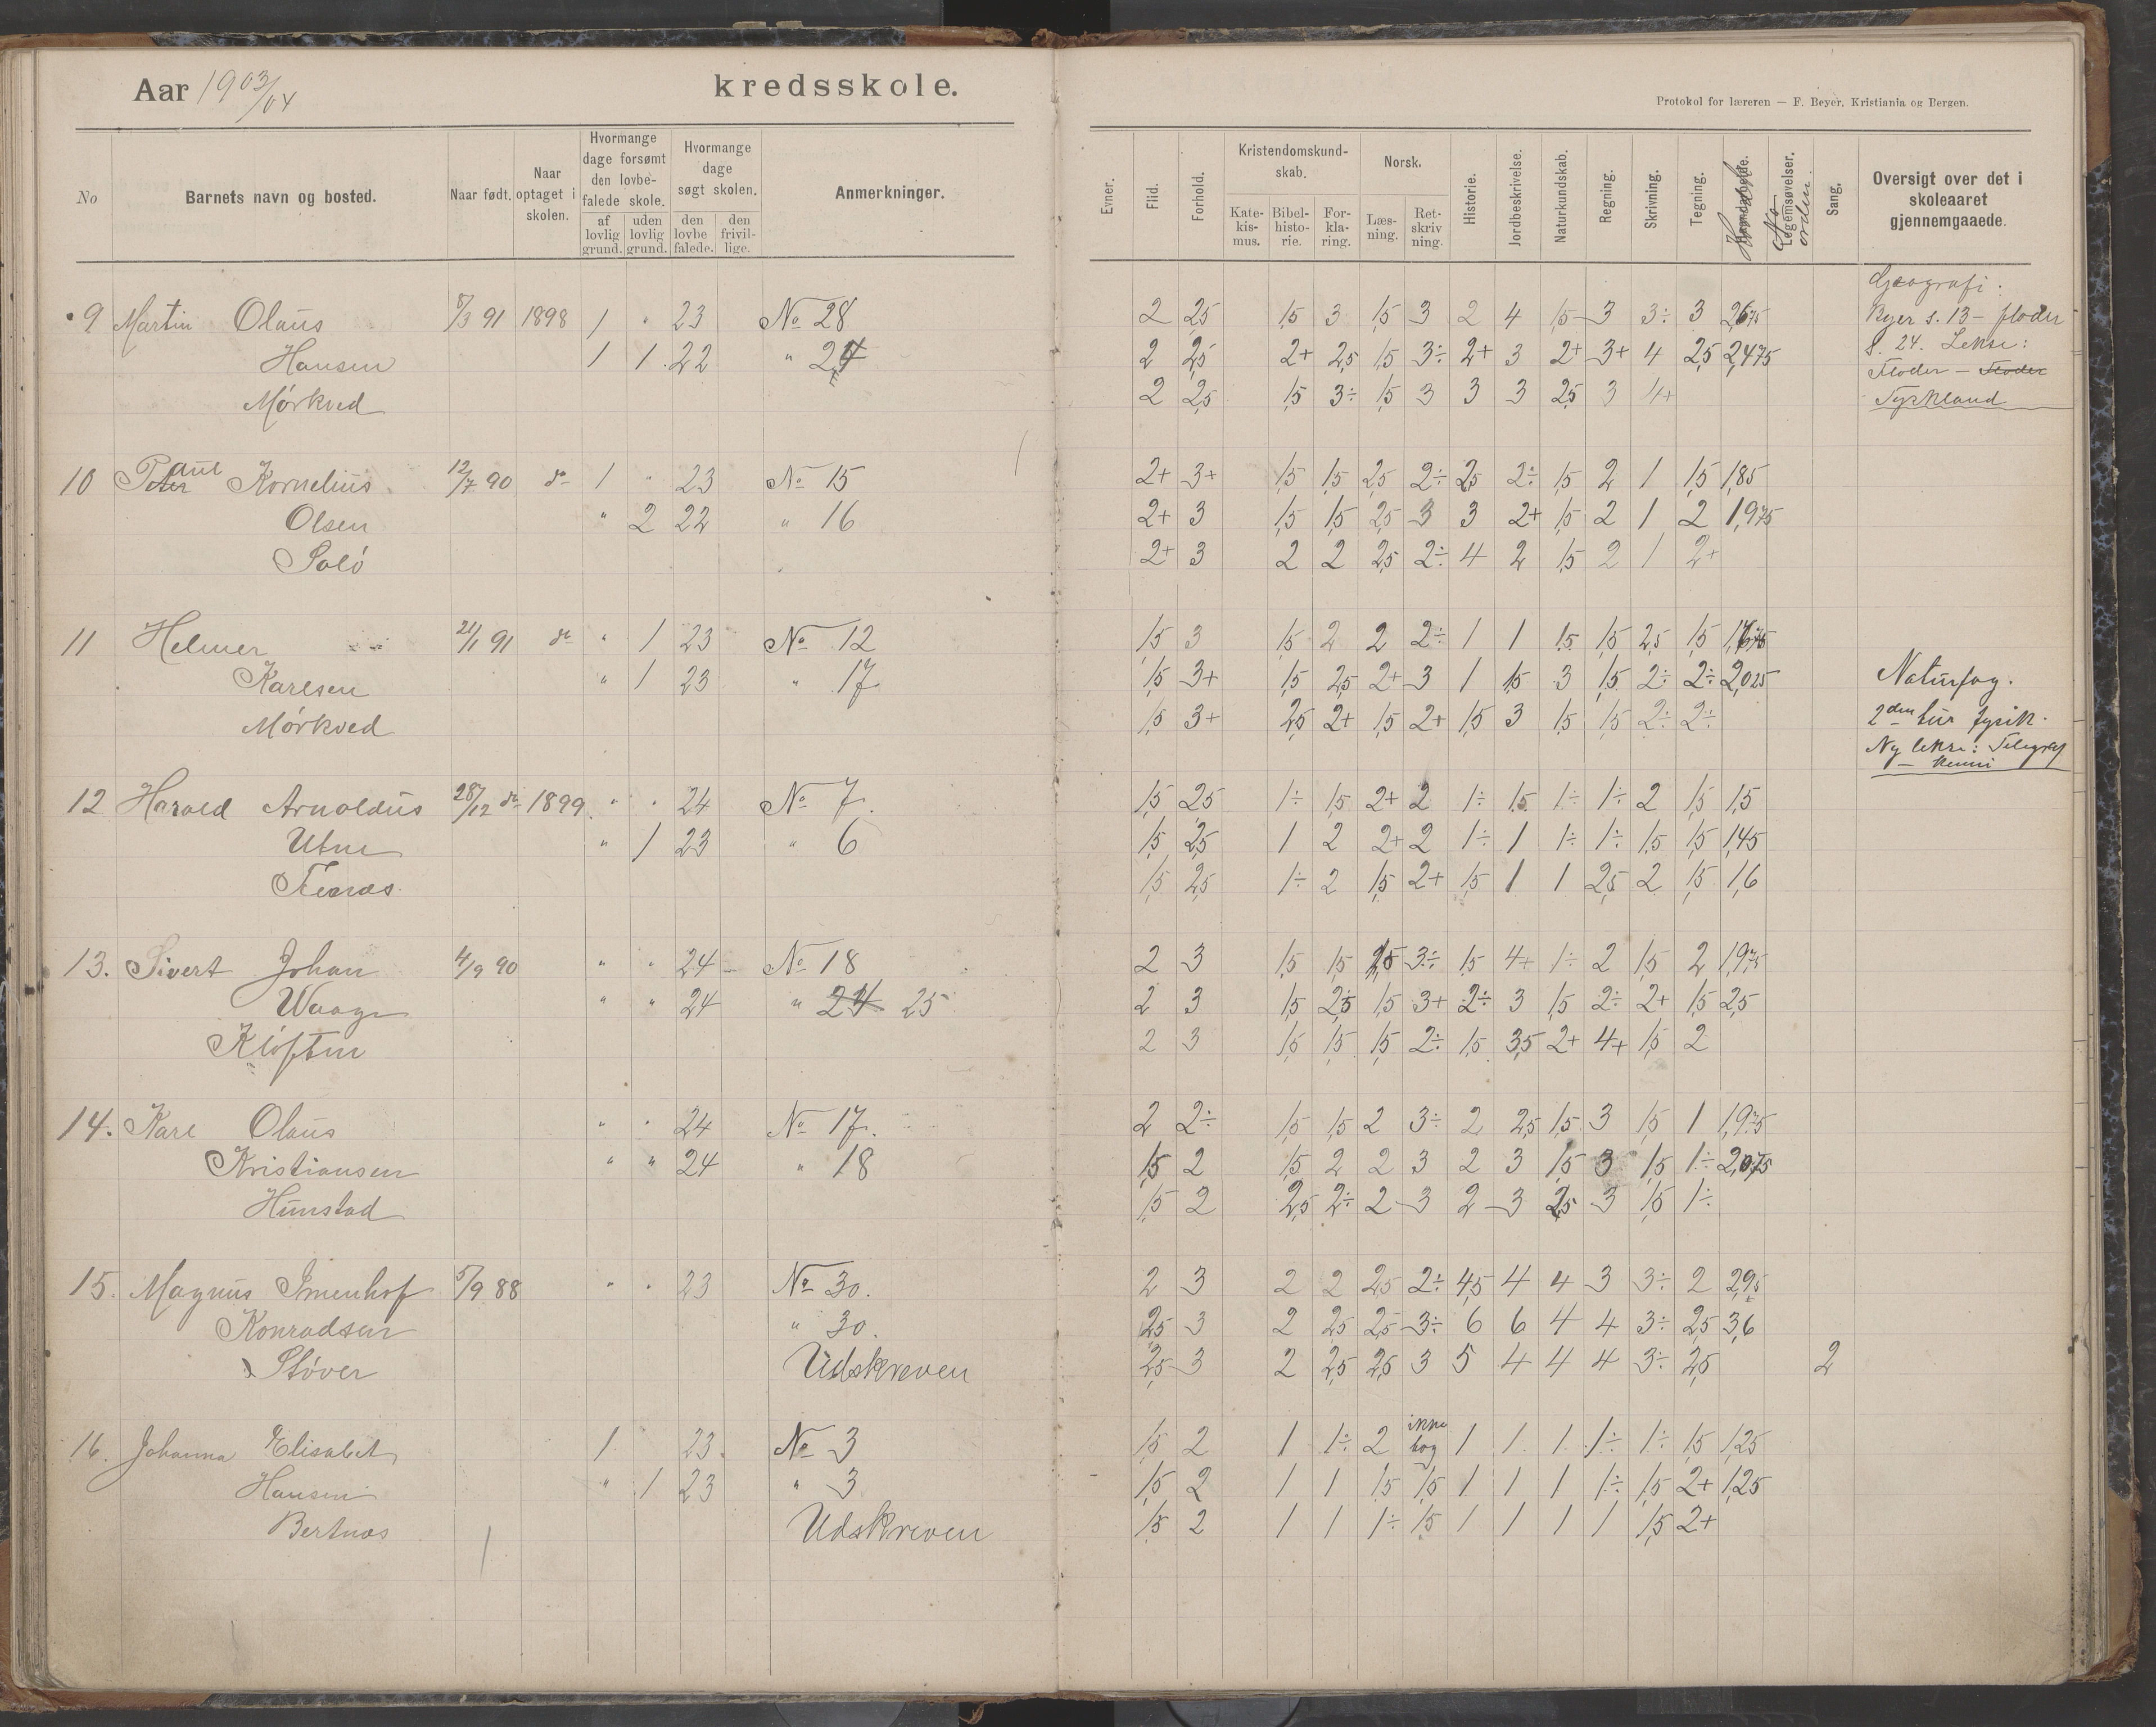 Aar 1903/04 kredsskole.
Protokol for læreren — F. Beyer, Kristiania og Bergen.
No Barnets navn og bosted. Naar født. Naar optaget i skolen. Hvormange dage forsømt den lovbefalede skole. af lovlig grund. uden lovlig grund. Hvormange dage søgt skolen. den lovbefalede. den frivillige. Anmerkninger.
Evner. Flid. Forhold. Kristendomskundskab. Katekismus. Bibelhistorie. Forklaring. Norsk. Læsning. Retskrivning. Historie. Jordbeskrivelse. Naturkundskab. Regning. Skrivning. Tegning. Haandarbeide. Legemsøvelser. Sang. Oversigt over det i skoleaaret gjennemgaaede.
9 Martin Olaus 8/3 91 1898 1 " 23 No 28 2 2,5 1,5 3 1,5 3 2 4 1,5 3 3÷ 3
Hansen 1 1 22 " 2 2,5 2+ 2,5 1,5 3÷ 2+ 3 2+ 3+ 4 2,5 2,475
Mørkved 2 2,5 1,5 3÷ 1,5 3 3 3 2,5 3 4+
Geografi:
Byer s. 13 - floder
s. 24. Lekse:
Floder - Floder
Tyskland
10 Peter Paul Kornelius 12/7 90 do 1 " 23 No 15 2+ 3+ 1,5 1,5 2,5 2÷ 2,5 2÷ 1,5 2 1 1,5 1,85
Olsen " 2 22 " 16 2+ 3 1,5 1,5 2,5 3 3 2+ 1,5 2 1 2 1,975
Soló 2+ 3 2 2 2,5 2÷ 4 2 1,5 2 1 2+
11 Helmer 21/1 91 do " 1 23 No 12 1,5 3 1,5 2 2 2÷ 1 1 1,5 1,5 2,5 1,5
Karlsen " 1 23 " 17 1,5 3+ 1,5 2,5 2+ 3 1 1,5 3 1,5 2÷ 2÷ 2,025
Mørkved 1,5 3+ 2,5 2+ 1,5 2+ 1,5 3 1,5 1,5 2÷ 2÷
Naturfag.
2den tur fysik.
Ny lekse: Telegraf
12 Harald Arnoldus 28/12 do 1899 " " 24 No 7. 1,5 2,5 1÷ 1,5 2+ 2 1÷ 1,5 1÷ 1÷ 2 1,5 1,5
Utne " 1 23 " 6 1,5 2,5 1 2 2+ 2 1÷ 1 1÷ 1÷ 1,5 1,5 1,45
1,5 2,5 1÷ 2 1,5 2+ 1,5 1 1 2,5 2 1,5 1,6
13. Sivert Johan 4/9 90 " " 24 No 18 2 3 1,5 1,5 1,5 3÷ 1,5 4+ 1÷ 2 1,5 2 1,975
Waage " " 24 " 24 25 2 3 1,5 2,5 1,5 3+ 2÷ 3 1,5 2÷ 2+ 1,5 2,5
Kløften 2 3 1,5 1,5 1,5 2÷ 1,5 3,5 2+ 4+ 1,5 2
14. Karl Olaus " " 24 No 17. 2 2÷ 1,5 1,5 2 3÷ 2 2,5 1,5 3 1,5 1 1,975
Kristiansen " " 24 " 18 1,5 2 1,5 2 2 3 2 3 1,5 3 1,5 1÷ 2,075
Hunstad 1,5 2 2,5 2÷ 2 3 2 3 2,5 3 1,5 1÷
15. Magnus Imenhof 5/9 88 " " 23 No 30. 2 3 2 2 2,5 2÷ 4,5 4 4 3 3÷ 2 2,95
Konradsen " 30. 2,5 3 2 2,5 2,5 3÷ 6 6 4 4 3÷ 2,5 3,6
Støver Udskreven 2,5 3 2 2,5 2,5 3 5 4 4 4 3÷ 2,5 2
16. Johanna Elisabet 1 23. No 3 1,5 2 1 1÷ 2 ikke bog 1 1 1 1÷ 1÷ 1,5 1,25
Hansen " 1 23 " 3 1,5 2 1 1 1,5 1,5 1 1 1 1÷ 1,5 2+ 1,25
Bertnæs Udskreven 1,5 2 1 1 1÷ 1,5 1 1 1 1 1,5 2+